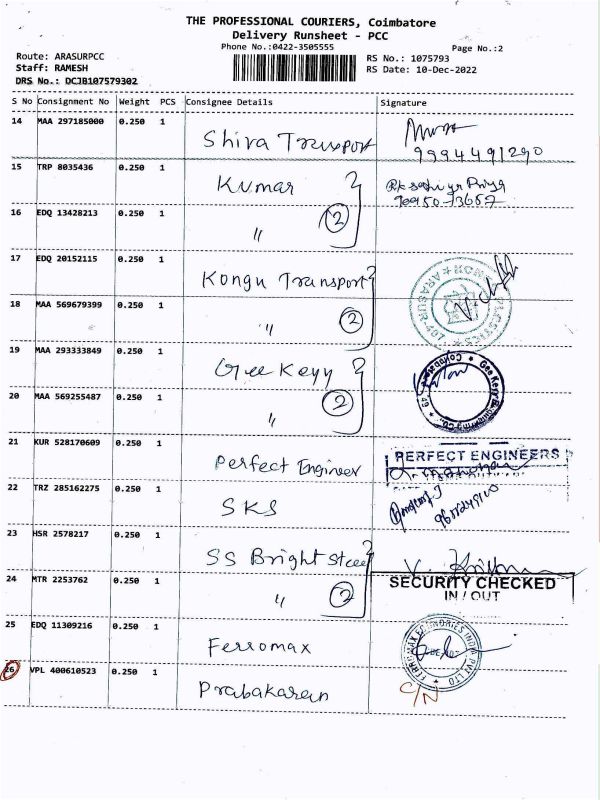 THE PROFESSIONAL COURIERS, Coimbatore
Delivery Runsheet - PCC
Phone No.:0422-3505555
Page No.:2
Route: ARASURPCC
RS No.: 1075793
Staff: RAMESH
RS Date: 10-Dec-2022
DRS No.: DCJB107579302
S No Consignment No Weight PCS Consignee Details Signature
14 MAA 297185000 0.250 1
Shiva Transport
9994491290
15 TRP 8035436 0.250 1
Kumar
16 EDQ 13428213 0.250 1
" 2
17 EDQ 20152115 0.250 1
Kongu Transport
18 MAA 569679399 0.250 1
" 2
ARASUR-407
19 MAA 293333849 0.250 1
Gee Keyy
20 MAA 569255487 0.250 1
" 2
21 KUR 528170609 0.250 1
Perfect Engineer
PERFECT ENGINEERS
22 TRZ 285162275 0.250 1
SKS
23 HSR 2578217 0.250 1
SS Bright Steel
24 MTR 2253762 0.250 1
" 2
SECURITY CHECKED
IN / OUT
25 EDQ 11309216 0.250 1
Ferromax
26 VPL 400610523 0.250 1
Prabakaran
C/N